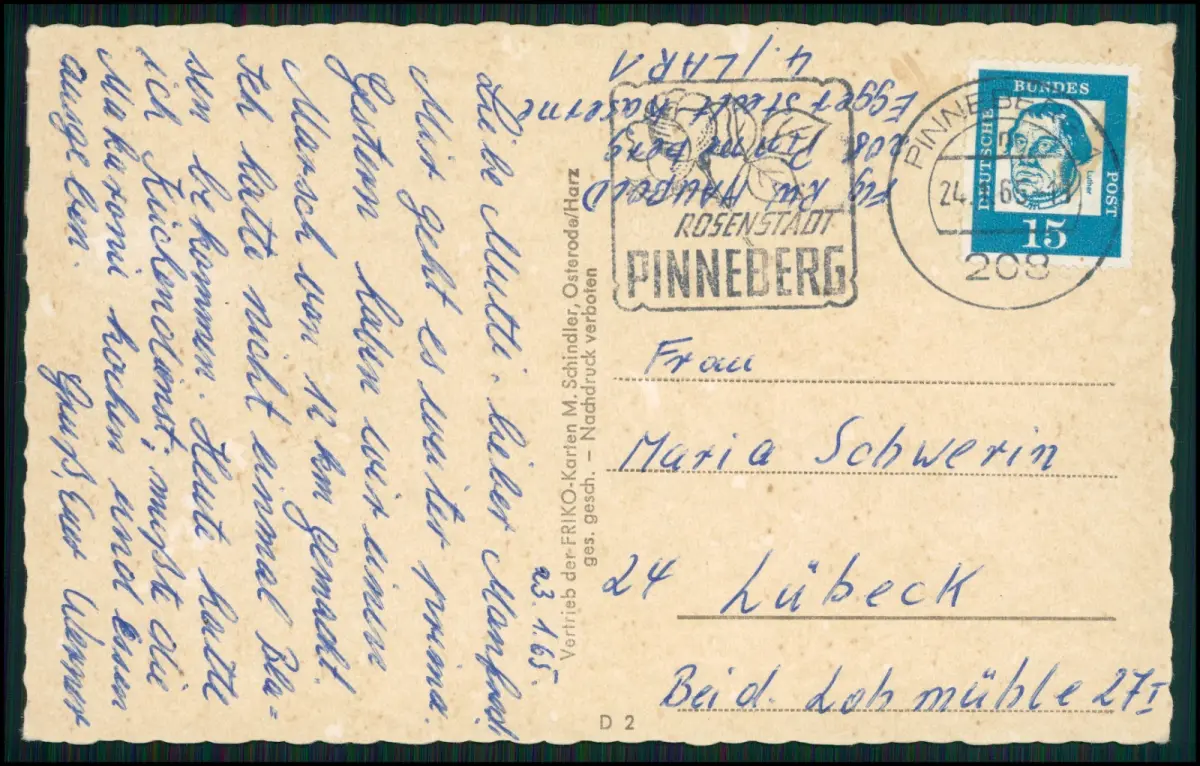 23.1.65.
Liebe Mutti - lieber Manfred
Mir geht es weiter prima.
Gestern haben wir einen
Marsch von 12 km gemacht.
Ich hatte nicht einmal Bla-
sen bekommen. Heute hatte
ich Küchendienst; mußt die
Makaronie kochen und essen
ausgeben.
Gruß Euer Werner
Vertrieb der FRIKO-Karten M. Schindler, Osterode/Harz
ges. gesch. – Nachdruck verboten
D 2
Flg RW HAUFELD
208 Pinneberg
Eggerstedt Kaserne
4./LAR 1
ROSENSTADT
PINNEBERG
PINNEBERG
24. 65
208
DEUTSCHE
BUNDES
POST
Luther
15
Frau
Maria Schwerin
24 Lübeck
Bei d. Lohmühle 27I